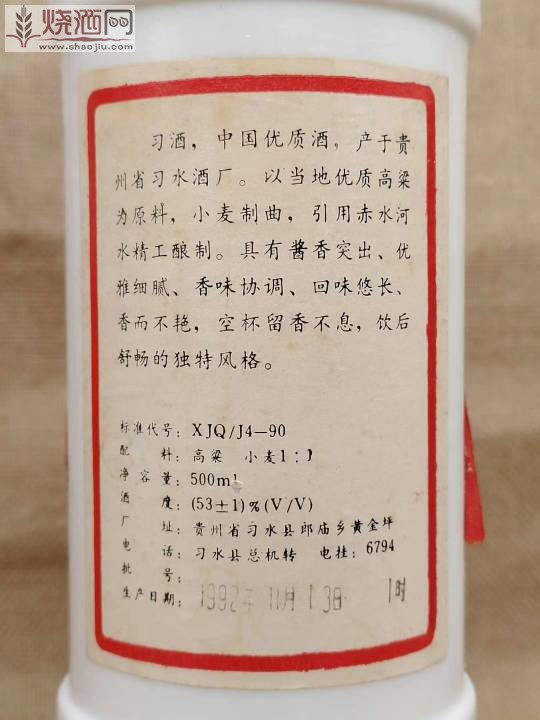 烧酒网
www.shaojiu.com
习酒，中国优质酒，产于贵
州省习水酒厂。以当地优质高粱
为原料，小麦制曲，引用赤水河
水精工酿制。具有酱香突出、优
雅细腻、香味协调、回味悠长、
香而不艳，空杯留香不息，饮后
舒畅的独特风格。
标准代号：XJQ/J4—90
配料：高粱 小麦1:1
净容量：500ml
酒度：(53±1)%(V/V)
厂址：贵州省习水县郎庙乡黄金坪
电话：习水县总机转 电挂：6794
批号：
生产日期：1992年11月13日 1时